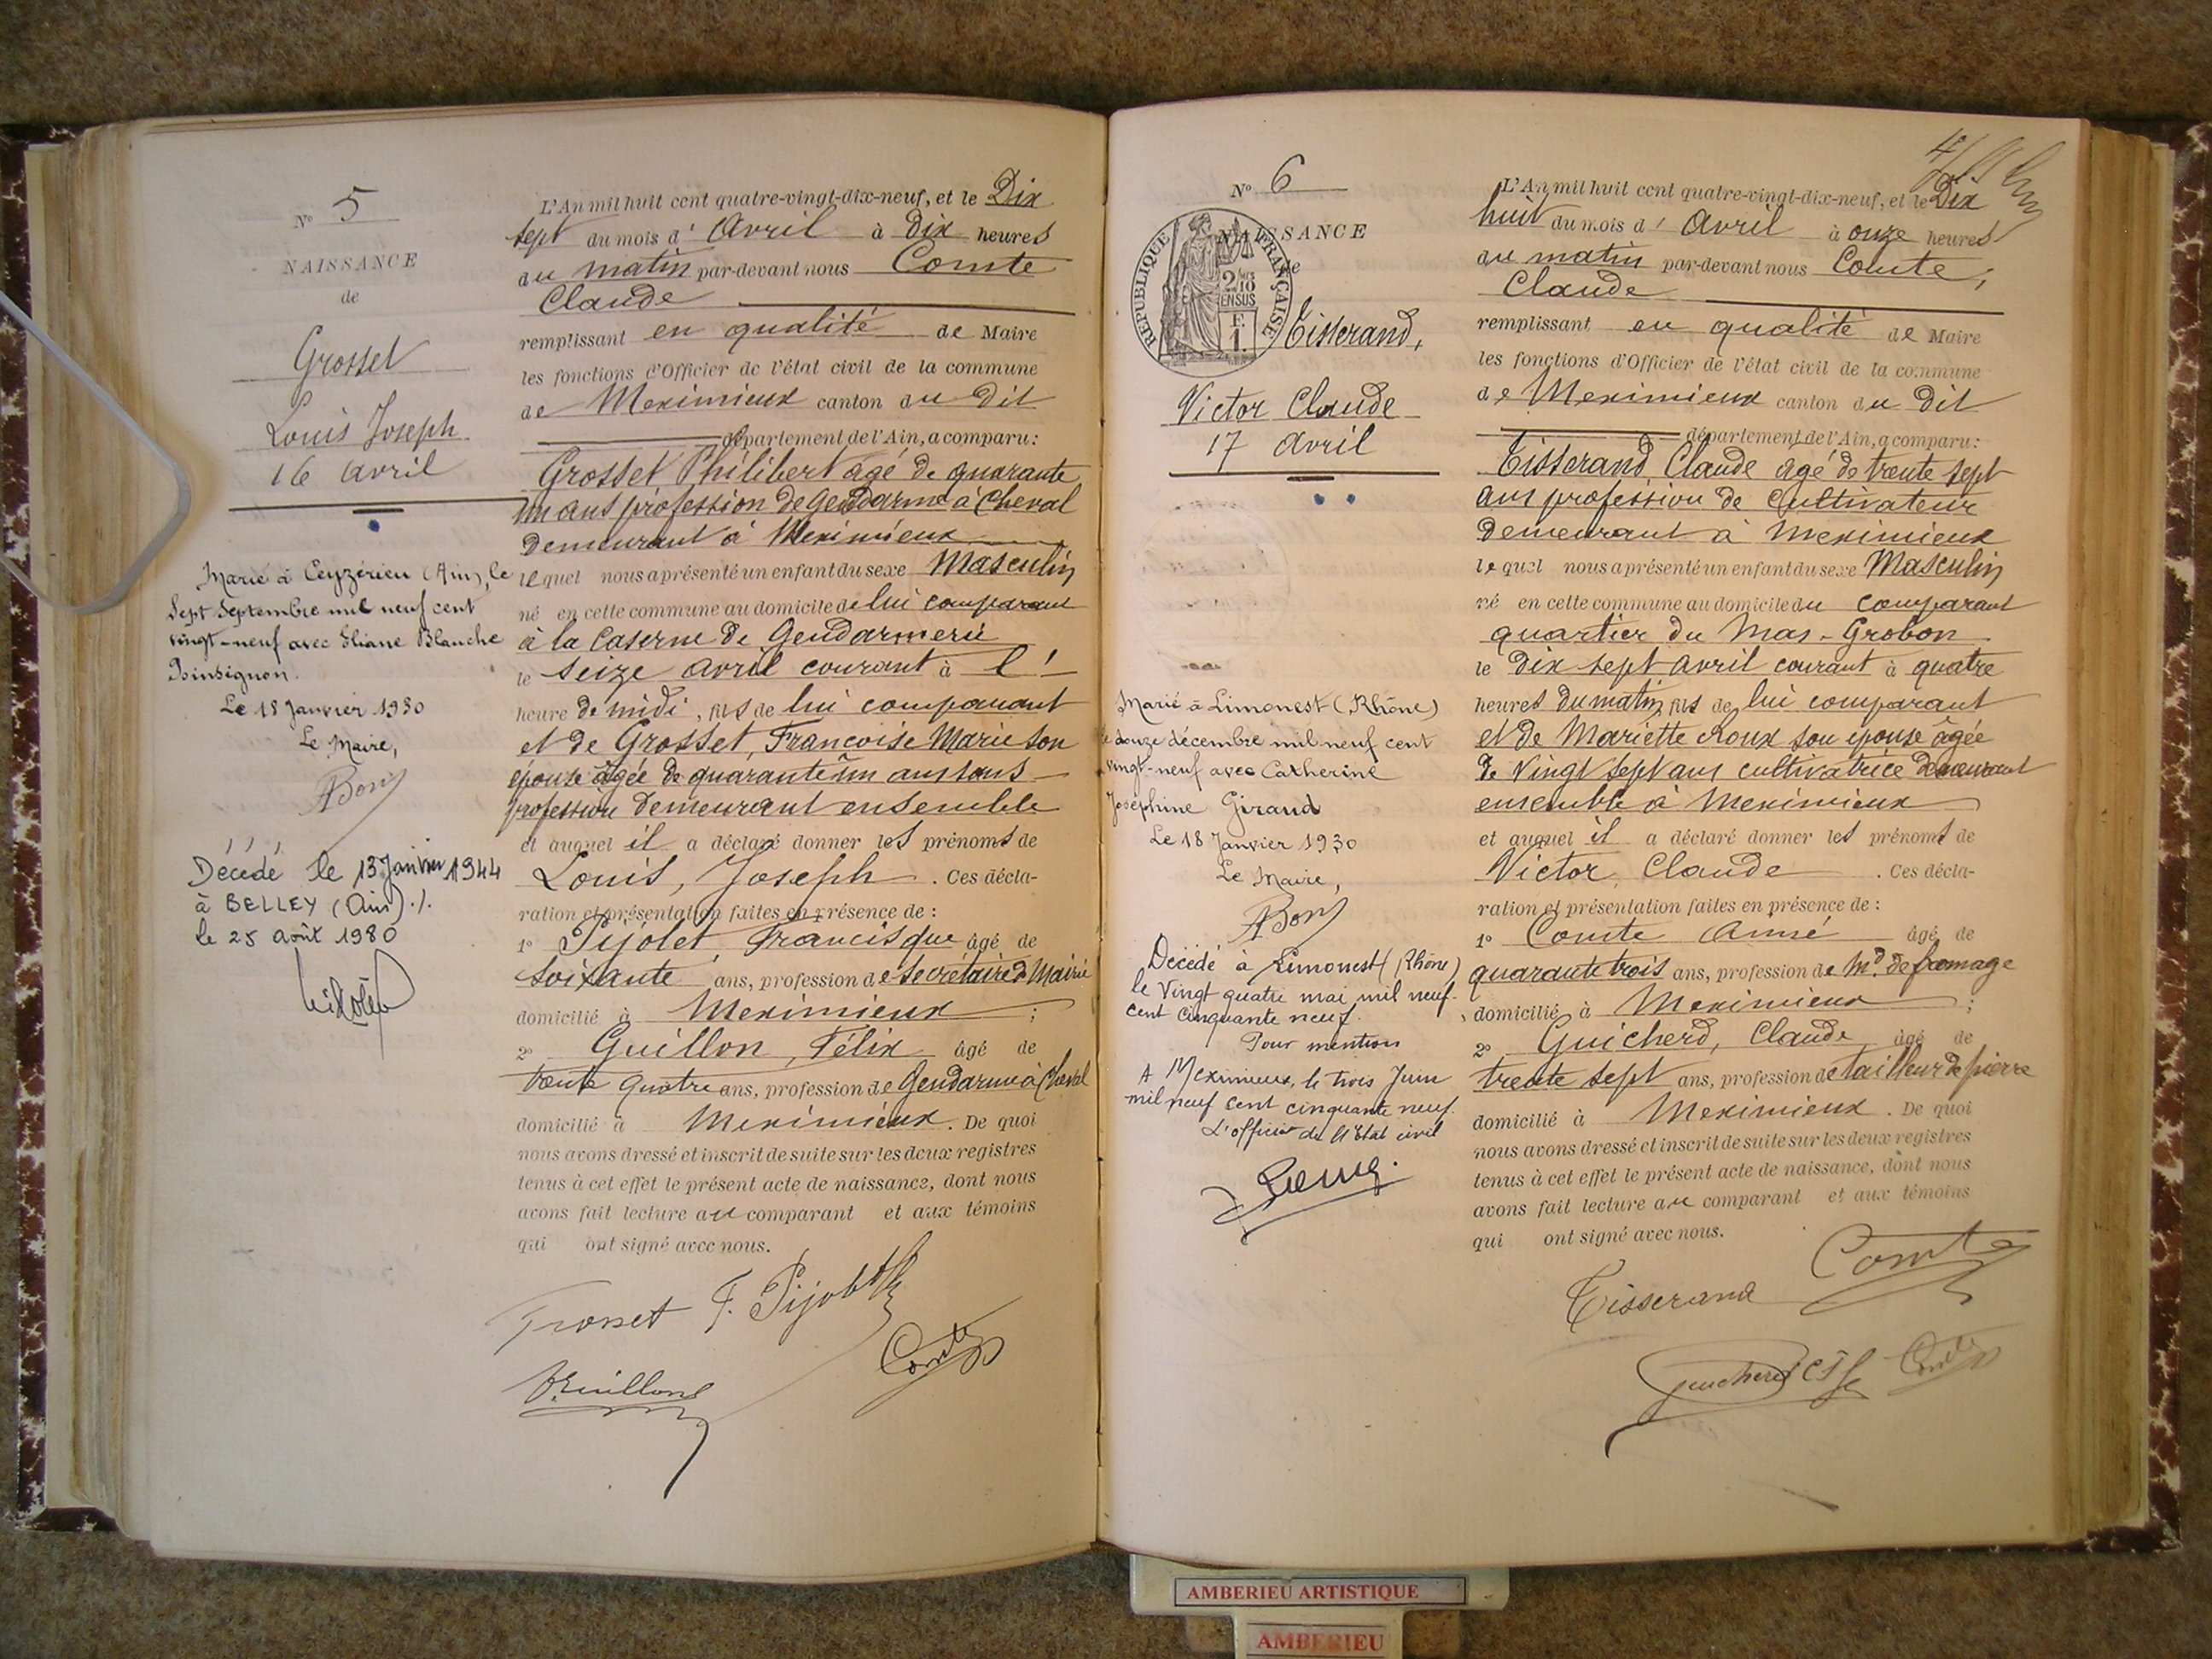 N° 5
NAISSANCE
de
Grosset
Louis Joseph
16 avril
Marié à Ceyzérieu (Ain), le
sept septembre mil neuf cent
vingt-neuf avec Eliane Blanche
Poinsignon.
Le 18 Janvier 1930
Le Maire,
ABon
Décédé le 13 Janvier 1944
à BELLEY (Ain) ./.
le 25 août 1980
L'An mil huit cent quatre-vingt-dix-neuf, et le Dix
sept du mois d' Avril à Dix heures
du matin par-devant nous Comte
Claude
remplissant en qualité de Maire
les fonctions d'Officier de l'état civil de la commune
de Meximieux canton du dit
département de l'Ain, a comparu:
Grosset Philibert âgé de quarante
un ans profession de Gendarme à Cheval
Demeurant à Meximieux
lequel nous a présenté un enfant du sexe Masculin
né en cette commune au domicile de lui comparant
à la Caserne de Gendarmerie
le seize avril courant à l'
heure de midi, fils de lui comparant
et de Grosset, Françoise Marie son
épouse âgée de quarante un ans sans
profession demeurant ensemble
et auquel il a déclaré donner les prénoms de
Louis, Joseph . Ces décla-
ration et présentation faites en présence de :
1° Pijolet, Francisque âgé de
soixante ans, profession de secrétaire de Mairie
domicilié à Meximieux ;
2° Guillon, Félix âgé de
trente quatre ans, profession de Gendarme à Cheval
domicilié à Meximieux . De quoi
nous avons dressé et inscrit de suite sur les deux registres
tenus à cet effet le présent acte de naissance, dont nous
avons fait lecture au comparant et aux témoins
qui ont signé avec nous.
Grosset F. Pijolet
Guillon Comte
N° 6
NAISSANCE
de
REPUBLIQUE FRANÇAISE
2/10
EN SUS
F.
1.
Tisserand,
Victor Claude
17 avril
Marié à Limonest (Rhône)
le douze décembre mil neuf cent
vingt-neuf avec Catherine
Joséphine Giraud
Le 18 Janvier 1930
Le Maire,
ABon
Décédé à Limonest (Rhône)
le vingt quatre mai mil neuf
cent cinquante neuf.
Pour mention
A Meximieux, le trois Juin
mil neuf cent cinquante neuf.
L'officier de l'Etat civil
L'An mil huit cent quatre-vingt-dix-neuf, et le Dix
huit du mois d' Avril à onze heures
du matin par-devant nous Comte,
Claude
remplissant en qualité de Maire
les fonctions d'Officier de l'état civil de la commune
de Meximieux canton du dit
département de l'Ain, a comparu:
Tisserand, Claude âgé de trente sept
ans profession de Cultivateur
demeurant à Meximieux
lequel nous a présenté un enfant du sexe Masculin
né en cette commune au domicile du comparant
quartier du Mas-Grobon
le dix sept avril courant à quatre
heures du matin, fils de lui comparant
et de Mariette Roux son épouse âgée
de vingt sept ans cultivatrice demeurant
ensemble à Meximieux
et auquel il a déclaré donner les prénoms de
Victor, Claude . Ces décla-
ration et présentation faites en présence de :
1° Comte Aimé âgé de
quarante trois ans, profession de Md. de fromage
domicilié à Meximieux ;
2° Guicherd, Claude âgé de
trente sept ans, profession de tailleur de pierre
domicilié à Meximieux . De quoi
nous avons dressé et inscrit de suite sur les deux registres
tenus à cet effet le présent acte de naissance, dont nous
avons fait lecture au comparant et aux témoins
qui ont signé avec nous.
Tisserand Comte
Guicherd Comte
AMBERIEU ARTISTIQUE
AMBERIEU